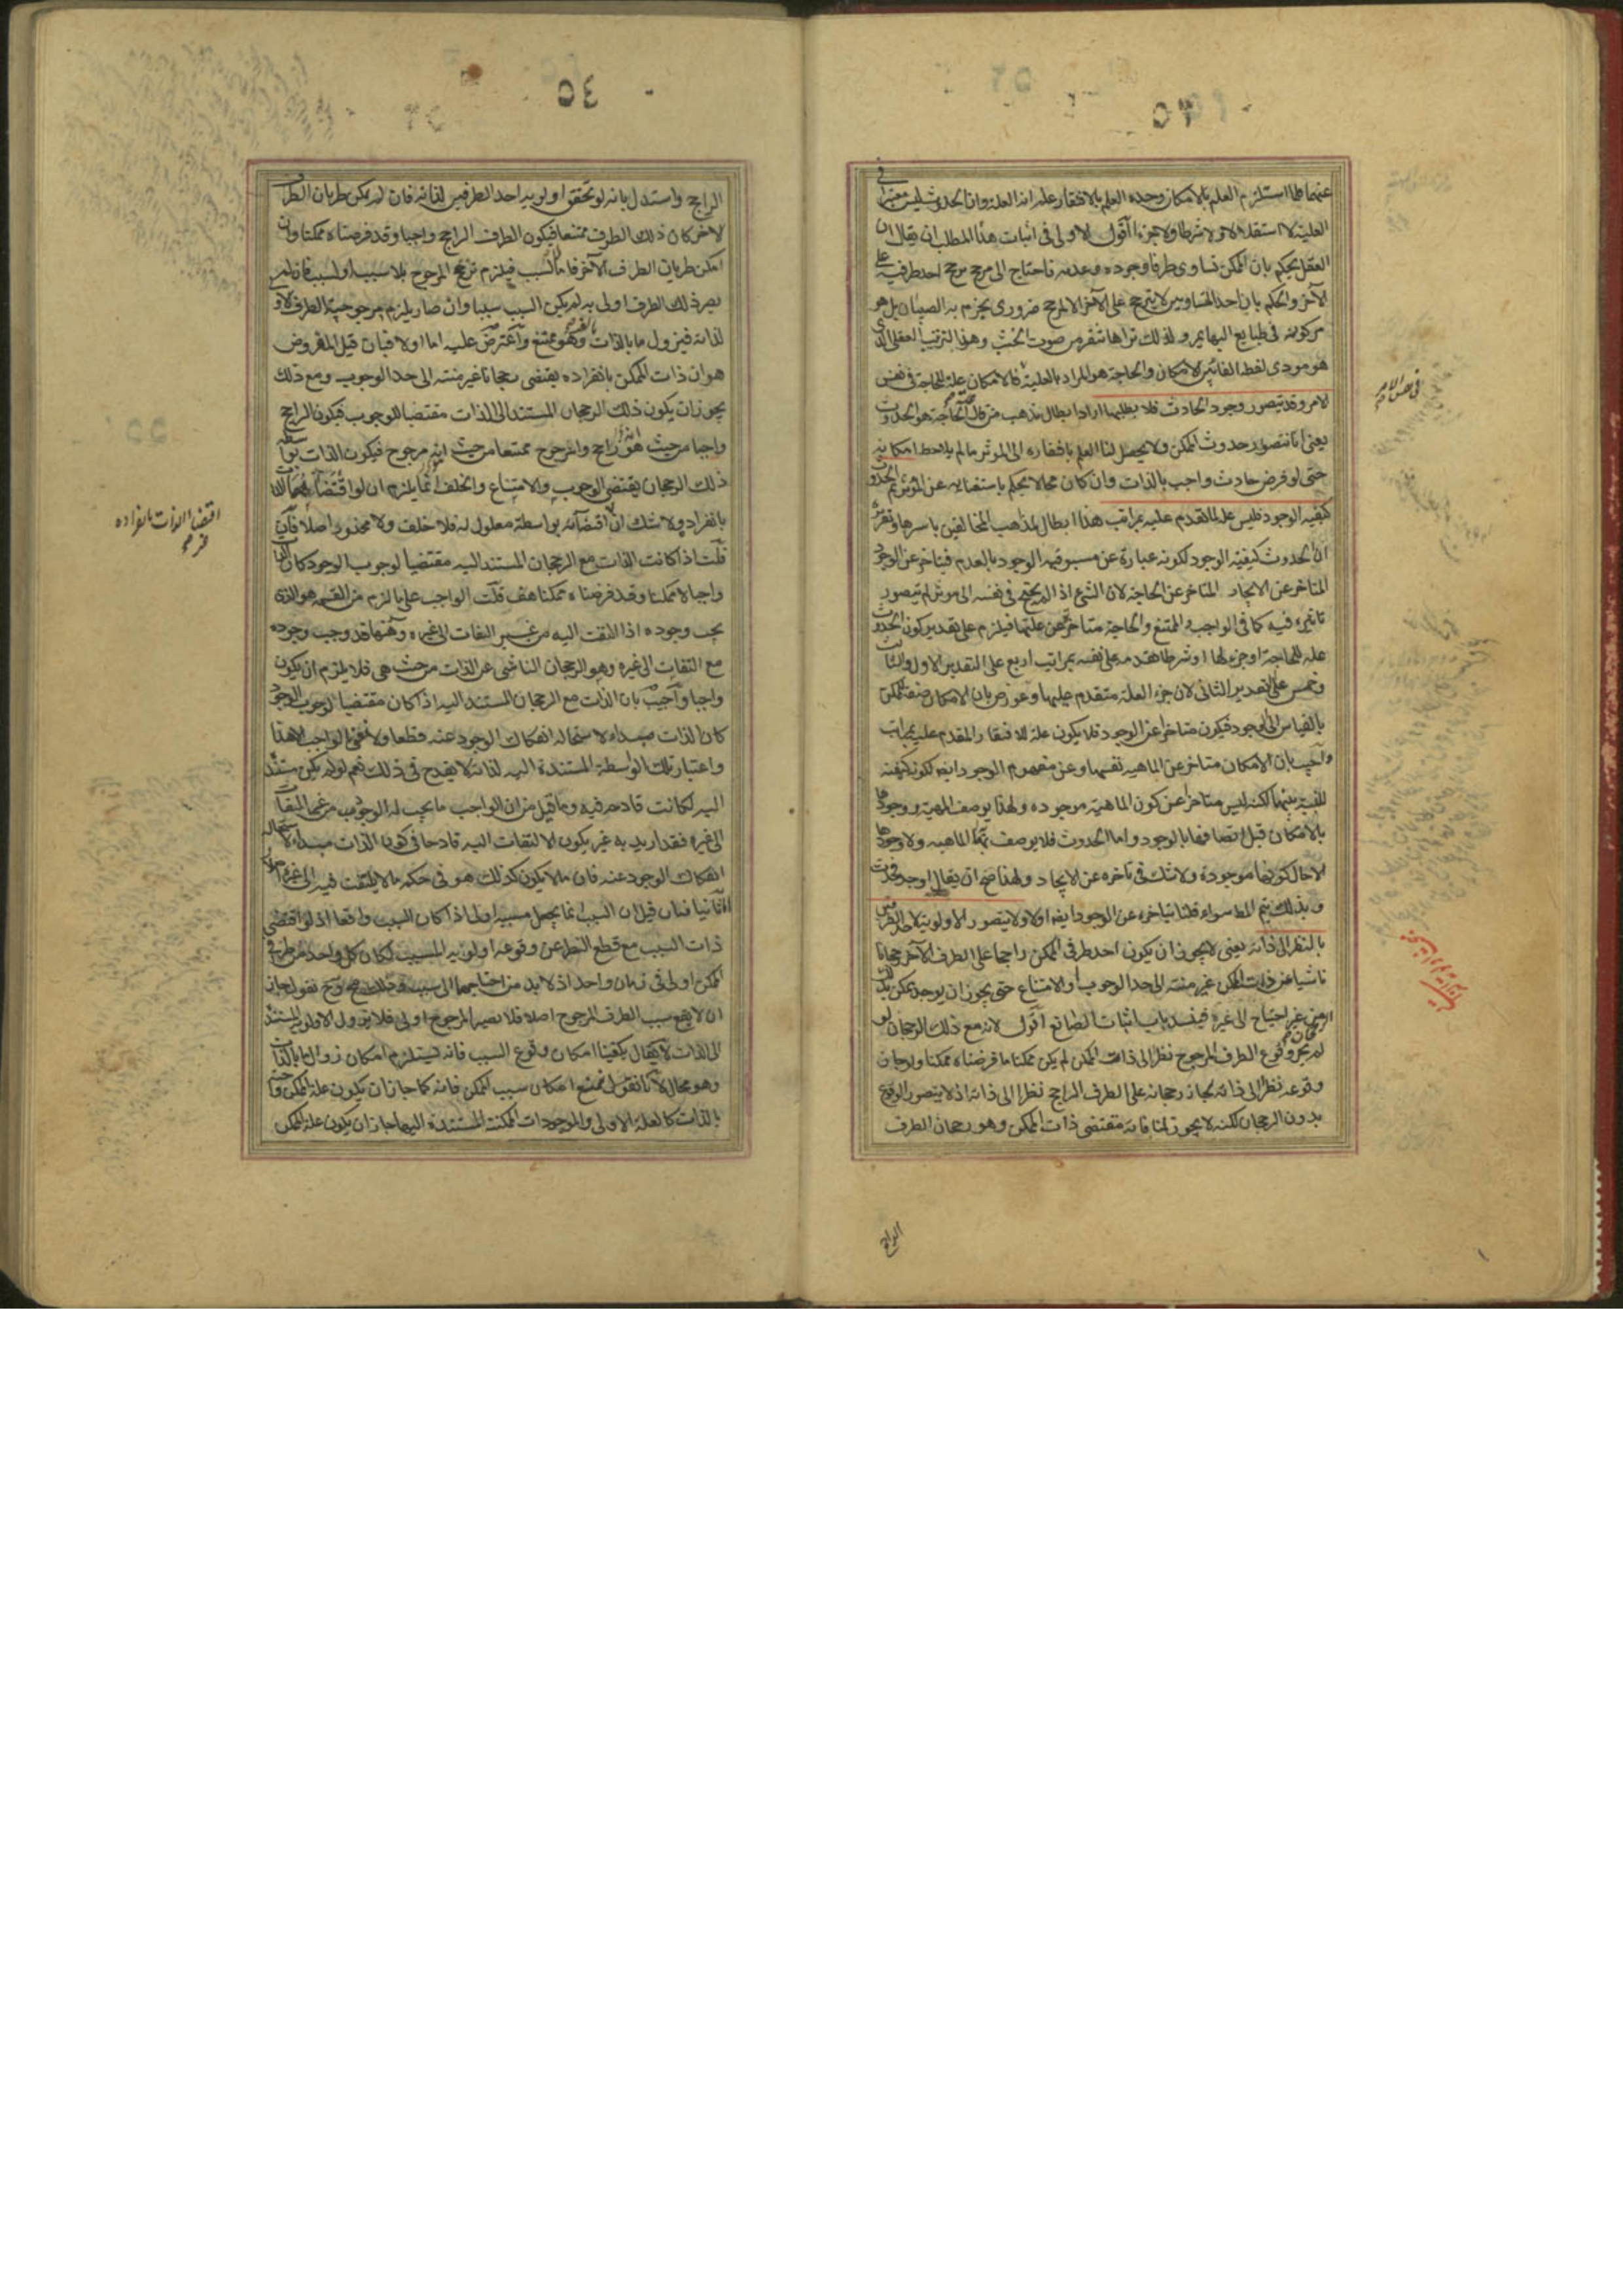 ٥٣
عنهما فلما استلزم العلم بالامكان وحده العلم بالافتقار علم انه العلة وان الحدوث ليس معتبرا في
العلية لا استقلالا ولا شرطا ولا جزءا اقول الاولى في اثبات هذا المطلب ان يقال ان
العقل يحكم بان الممكن تساوى طرفا وجوده وعدمه فاحتاج الى مرجح يرجح احد طرفيه على
الآخر والحكم بان احد المتساويين لا يترجح على الآخر الا لمرجح ضرورى يجزم به الصبيان بل هو
مركوز في طبايع البهايم ولذلك تراها تنفر من صوت الخشب وهذا الترتيب العقلى الذى
هو مودى لفظ الفاء بين الامكان والحاجة هو المراد بالعلية فالامكان علة للحاجة في نفس
الامر وقد يتصور وجود الحادث فلا يطلبها اراد ابطال مذهب من قال علة الحاجة هو الحدوث
يعنى انا نتصور حدوث الممكن ولا يحصل لنا العلم بافتقاره الى الموثر ما لم يلاحظ امكانه
حتى لو فرض حادث واجب بالذات وان كان محالا يحكم باستغنايه عن الموثر ثم الحدوث
كيفية الوجود فليس علة لما تقدم عليه بمراتب هذا ابطال لمذهب المخالفين باسرها وتقريره
ان الحدوث كيفية الوجود لكونه عبارة عن مسبوقية الوجود بالعدم فيتاخر عن الوجود
المتاخر عن الايجاد المتاخر عن الحاجة لان الشئ اذا لم يحتج في نفسه الى موثر لم يتصور
تاثيره فيه كما في الواجب والممتنع والحاجة متاخرة عن علتها فيلزم على تقدير كون الحدوث
علة للحاجة او جزءا لها او شرطا تقدمه على نفسه بمراتب اربع على التقدير الاول والثالث
وخمس على التقدير الثانى لان جزء العلة متقدم عليها وعورض بان الامكان صفة للممكن
بالقياس الى الوجود فيكون متاخرا عن الوجود فلا يكون علة للافتقار المقدم عليه بمراتب
واجيب بان الامكان متاخر عن الماهية نفسها وعن مفهوم الوجود ايضا لكونه كيفية
للنسبة بينهما لكنه ليس متاخرا عن كون الماهية موجودة ولهذا يوصف الماهية ووجودها
بالامكان قبل اتصافها بالوجود واما الحدوث فلا يوصف به الماهية ولا وجودها
الا حال كونها موجودة ولا شك في تاخره عن الايجاد ولهذا صح ان يقال اوجد فحدث
وبذلك يتم المط سواء قلنا بتاخره عن الوجود ايضا اولا ولا يتصور الاولوية لاحد الطرفين
بالنظر الى ذاته يعنى لا يجوز ان يكون احد طرفى الممكن راجحا على الطرف الآخر رجحانا
ناشيا عن ذات الممكن غير منته الى حد الوجوب او الامتناع حتى يجوز ان يوجد ممكن بذلك
من غير احتياج الى غيره فينسد باب اثبات الصانع اقول لانه مع ذلك الرجحان لو
لم يجز وقوع الطرف المرجوح نظرا الى ذات الممكن لم يكن ممكنا ما فرضناه ممكنا ولو جاز
وقوعه نظرا الى ذاته لجاز رجحانه على الطرف الراجح نظرا الى ذاته اذ لا يتصور الوقوع
بدون الرجحان لكنه لا يجوز لمنافاته مقتضى ذات الممكن وهو رجحان الطرف
الراجح
في نفس الامر
٥٤
الراجح واستدل بانه لو تحقق اولوية احد الطرفين لذاته فان لم يكن طريان الطرف
الآخر كان ذلك الطرف ممتنعا فيكون الطرف الراجح واجبا وقد فرضناه ممكنا وان
امكن طريان الطرف الآخر فاما لا لسبب فيلزم ترجح المرجوح بلا سبب او لسبب فان لم
يصر ذلك الطرف اولى به لم يكن السبب سببا وان صار يلزم مرجوحية الطرف الاولى
لذاته فيزول ما بالذات بالغير وهو ممتنع واعترض عليه اما اولا فبان قيل المفروض
هو ان ذات الممكن بانفراده يقتضى رجحانا غير منته الى حد الوجوب ومع ذلك
يجوز ان يكون ذلك الرجحان المستند الى الذات مقتضيا للوجوب فيكون الراجح
واجبا من حيث هو راجح والمرجوح ممتنعا من حيث انه مرجوح فيكون الذات بواسطة
ذلك الرجحان يقتضى الوجوب والامتناع والخلف انما يلزم ان لو اقتضاهما الذات
بانفراده ولا شك ان اقتضائه بواسطة معلول له فلا خلف ولا محذور اصلا فان
قلت اذا كانت الذات مع الرجحان المستند اليه مقتضيا لوجوب الوجود كان الذات
واجبا لا ممكنا وقد فرضناه ممكنا هف قلت الواجب على ما لزم من القسمة هو الذى
يجب وجوده اذا التفت اليه من غير التفات الى غيره وههنا قد وجب وجوده
مع التفات الى غيره وهو الرجحان الناشى عن الذات من حيث هى فلا يلزم ان يكون
واجبا واجيب بان الذات مع الرجحان المستند اليه اذا كان مقتضيا لوجوب الوجود
كان الذات مبداء لاستحالة انفكاك الوجود عنه قطعا ولا نعنى بالواجب الا هذا
واعتبار تلك الواسطة المستندة اليه لذاته لا يقدح في ذلك نعم لو لم يكن مستندة
اليه لكانت قادحة فيه وما قيل من ان الواجب ما يجب له الوجوب من غير التفات
الى غيره فقد اريد به غير يكون الالتفات اليه قادحا في كون الذات مبداء لاستحالة
انفكاك الوجود عنه فان ما لا يكون كذلك هو في حكم ما لا يلتفت فيه الى غيره اصلا
واما ثانيا فبان قيل ان السبب انما يجعل مسببه اولى اذا كان السبب واقعا اذ لو اقتضى
ذات السبب مع قطع النظر عن وقوعه اولوية المسبب لكان كل واحد من طرفى
الممكن اولى في زمان واحد اذ لا بد من احتياجهما الى سبب نقول جاز
ان لا يقع سبب الطرف المرجوح اصلا فلا يصير المرجوح اولى فلا يزول الاولوية المستندة
الى الذات لا يقال يكفينا امكان وقوع السبب فانه يستلزم امكان زوال ما بالذات
وهو محال لانا نقول نمنع امكان سبب الممكن فانه كما جاز ان يكون علة الممكن واجبا
بالذات كالعلة الاولى والموجودات الممكنة المستندة اليها جاز ان يكون علة الممكن
اقتضاء الذات بانفراده